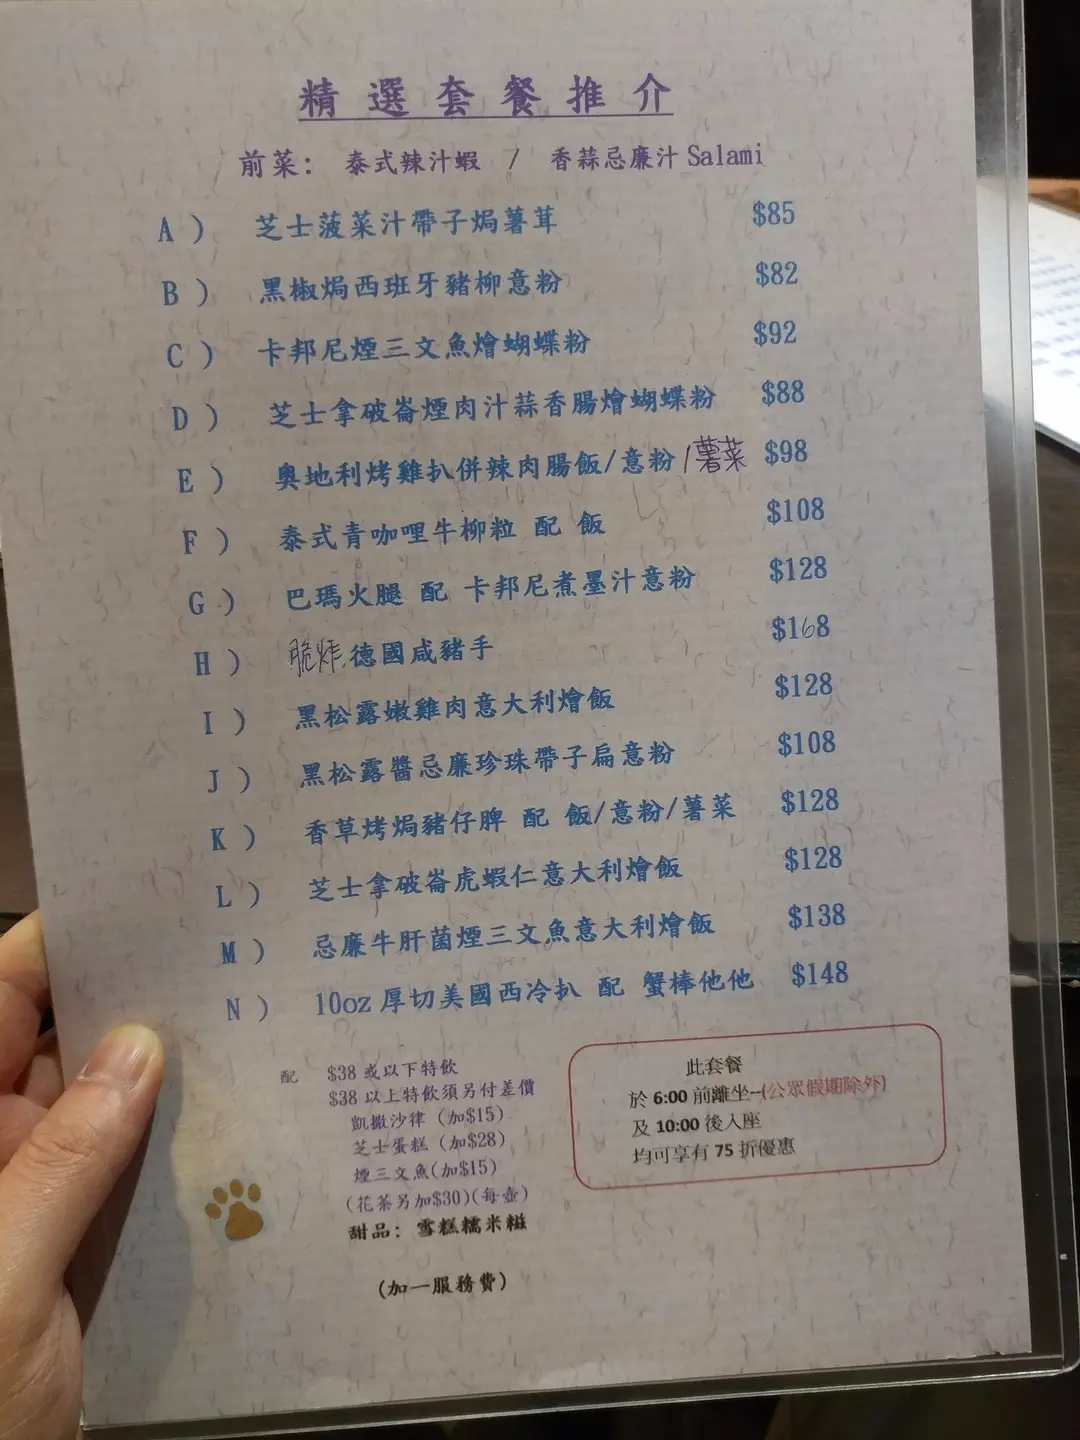 精選套餐推介
前菜: 泰式辣汁蝦 / 香蒜忌廉汁Salami
A) 芝士菠菜汁帶子焗薯茸 $85
B) 黑椒焗西班牙豬柳意粉 $82
C) 卡邦尼煙三文魚燴蝴蝶粉 $92
D) 芝士拿破崙煙肉汁蒜香腸燴蝴蝶粉 $88
E) 奧地利烤雞扒併辣肉腸飯/意粉/薯菜 $98
F) 泰式青咖哩牛柳粒 配 飯 $108
G) 巴瑪火腿 配 卡邦尼煮墨汁意粉 $128
H) 脆炸德國咸豬手 $168
I) 黑松露嫩雞肉意大利燴飯 $128
J) 黑松露醬忌廉珍珠帶子扁意粉 $108
K) 香草烤焗豬仔脾 配 飯/意粉/薯菜 $128
L) 芝士拿破崙虎蝦仁意大利燴飯 $128
M) 忌廉牛肝菌煙三文魚意大利燴飯 $138
N) 10oz厚切美國西冷扒 配 蟹棒他他 $148
配 $38或以下特飲
$38以上特飲須另付差價
凱撒沙律 (加$15)
芝士蛋糕 (加$28)
煙三文魚(加$15)
(花茶另加$30)(每壺)
甜品: 雪糕糯米糍
(加一服務費)
此套餐
於 6:00 前離坐--(公眾假期除外)
及 10:00 後入座
均可享有 75 折優惠